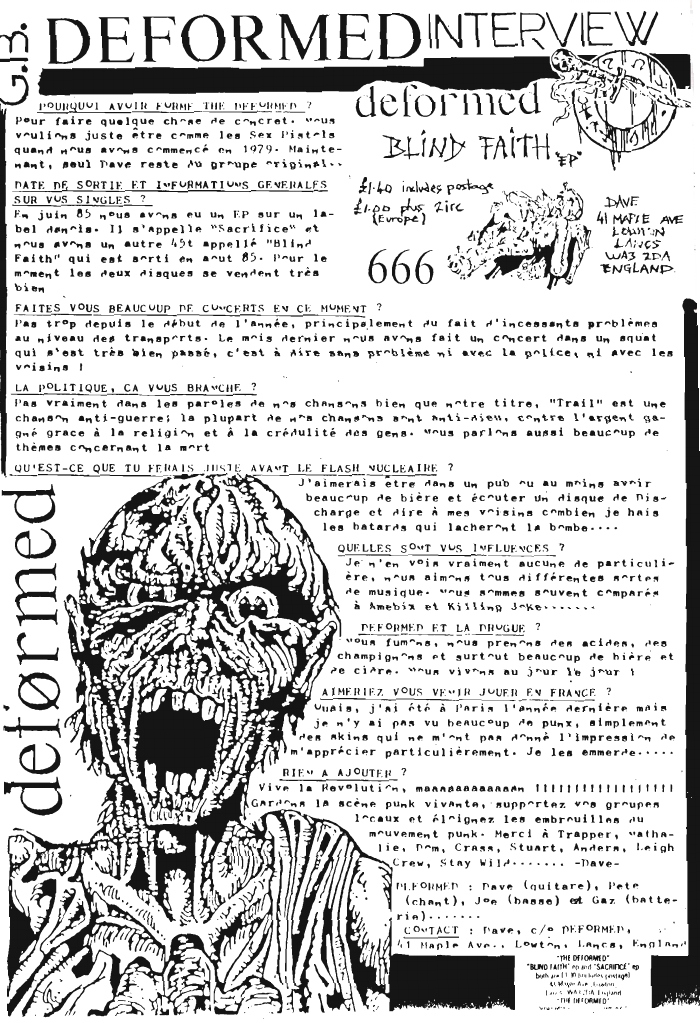 G.B. DEFORMED INTERVIEW
POURQUOI AVOIR FORME THE DEFORMED ?
Pour faire quelque chose de concret. Nous
voulions juste être comme les Sex Pistols
quand nous avons commencé en 1979. Mainte-
nant, seul Dave reste du groupe original..
DATE DE SORTIE ET INFORMATIONS GENERALES
SUR VOS SINGLES ?
En juin 85 nous avons eu un EP sur un la-
bel danois. Il s'appelle "Sacrifice" et
nous avons un autre 45t appellé "Blind
Faith" qui est sorti en aout 85. Pour le
moment les deux disques se vendent très
bien
deformed
BLIND FAITH "EP"
£1.40 includes postage
£1.00 plus 2irc
(Europe)
666
DAVE
41 MAPLE AVE
LOWTON
LANCS
WA3 2DA
ENGLAND
FAITES VOUS BEAUCOUP DE CONCERTS EN CE MOMENT ?
Pas trop depuis le début de l'année, principalement du fait d'incessants problèmes
au niveau des transports. Le mois dernier nous avons fait un concert dans un squat
qui s'est très bien passé, c'est à dire sans problème ni avec la police, ni avec les
voisins !
LA POLITIQUE, CA VOUS BRANCHE ?
Pas vraiment dans les paroles de nos chansons bien que notre titre, "Trail" est une
chanson anti-guerre; la plupart de nos chansons sont anti-dieu, contre l'argent ga-
gné grace à la religion et à la crédulité des gens. Nous parlons aussi beaucoup de
thèmes concernant la mort
QU'EST-CE QUE TU FERAIS JUSTE AVANT LE FLASH NUCLEAIRE ?
J'aimerais être dans un pub ou au moins avoir
beaucoup de bière et écouter un disque de Dis-
charge et dire à mes voisins combien je hais
les batards qui lacheront la bombe....
QUELLES SONT VOS INFLUENCES ?
Je n'en vois vraiment aucune de particuli-
ère, nous aimons tous différentes sortes
de musique. Nous sommes souvent comparés
à Amebix et Killing Joke.......
DEFORMED ET LA DROGUE ?
Nous fumons, nous prenons des acides, des
champignons et surtout beaucoup de bière et
de cidre. Nous vivons au jour le jour !
AIMERIEZ VOUS VENIR JOUER EN FRANCE ?
Ouais, j'ai été à Paris l'année dernière mais
je n'y ai pas vu beaucoup de punx, simplement
des skins qui ne m'ont pas donné l'impression de
m'apprécier particulièrement. Je les emmerde.....
RIEN A AJOUTER ?
Vive la Revolution, maaaaaaaaaaan !!!!!!!!!!!!!!!!!!
Gardons la scène punk vivante, supportez vos groupes
locaux et éloignez les embrouilles du
mouvement punk. Merci à Trapper, Natha-
lie, Dom, Crass, Stuart, Anders, Leigh
Crew, Stay Wild....... -Dave-
DEFORMED : Dave (guitare), Pete
(chant), Joe (basse) et Gaz (batte-
rie).......
CONTACT : Dave, c/o DEFORMED,
41 Maple Ave., Lowton, Lancs, England
deførmed
"THE DEFORMED"
"BLIND FAITH" ep and "SACRIFICE" ep
both are £1.10 (includes postage)
41 Maple Ave, Lowton
Lancs. WA3 2DA. England
"THE DEFORMED"